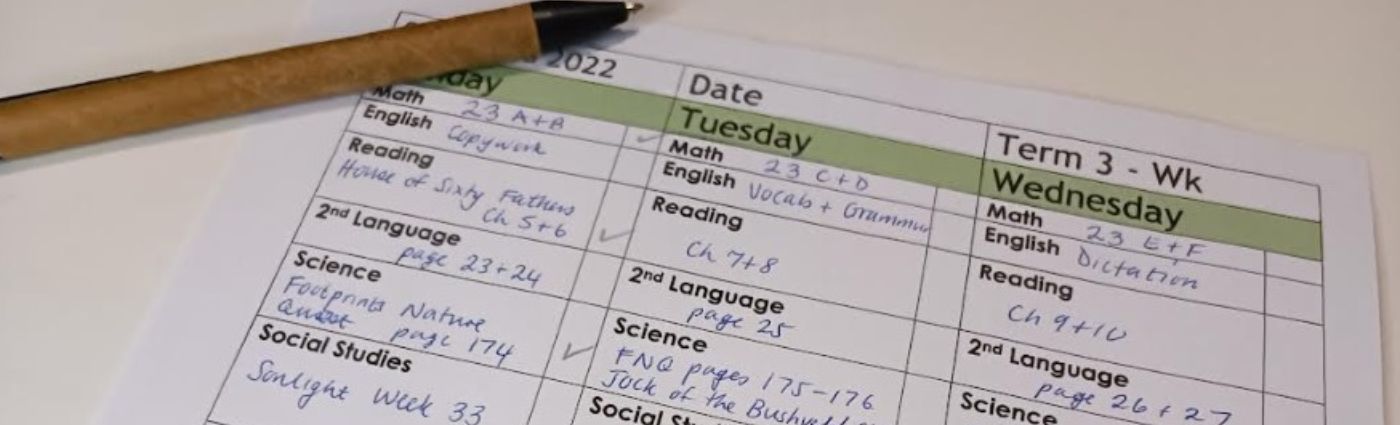 2022
Date
Term 3 - Wk
Math 23 A+B
English Copywork
Reading
House of Sixty Fathers
Ch 5+6
2nd Language
page 23+24
Science
Footprints Nature
Quest page 174
Social Studies
Sonlight Week 33
Tuesday
Math 23 C+D
English Vocab + Grammar
Reading
Ch 7+8
2nd Language
page 25
Science
FNQ pages 175-176
Jock of the
Wednesday
Math 23 E+F
English Dictation
Reading
Ch 9+10
2nd Language
page 26+27
Science